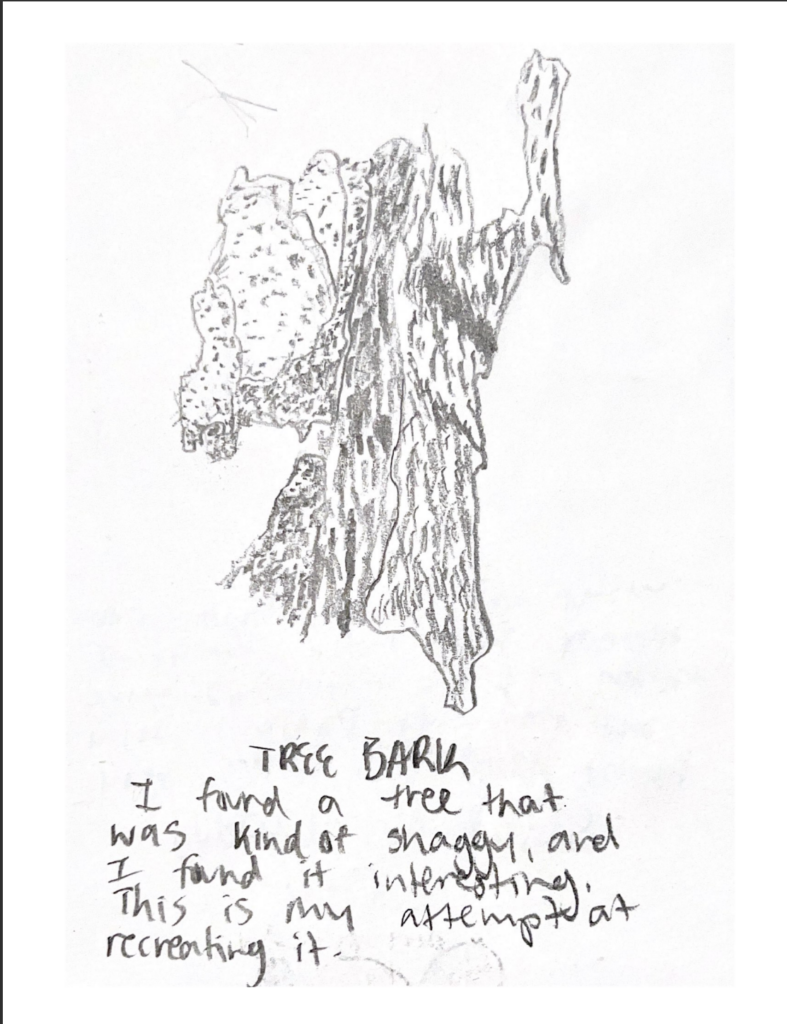 TREE BARK
I found a tree that
was kind of shaggy, and
I found it interesting.
This is my attempt at
recreating it.